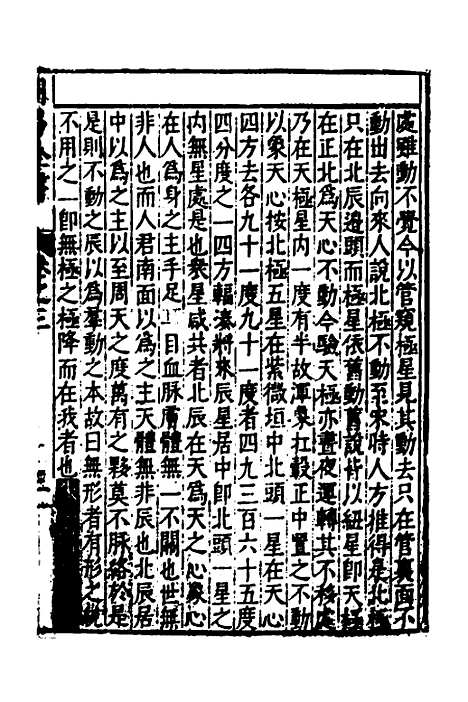 處雖動不覺今以管窺極星見其動去只在管裏面不
動出去向來人說北極不動至宋時人方推得是北極
只在北辰邉頭而極星依舊動舊說皆以紐星即天極
在正北爲天心不動今驗天極亦晝夜運轉其不移處
乃在天極星内一度有半故渾象杠轂正中置之不動
以象天心按北極五星在紫微垣中北頭一星在天心
四方去各九十一度九十一度者四九三百六十五度
四分度之一四方輻湊將來辰星居中即北頭一星之
内無星處是也衆星咸共者北辰在天爲天之心象心
在人爲身之主手足耳目血脉膚體無一不關也世無
非人也而人君南面以為之主天體無非辰也北辰居
中以為之主以至周天之度萬有之夥莫不脉絡於是
是則不動之辰以為羣動之本故曰無形者有形之統
不用之一即無極之極降而在我者也
卷之三